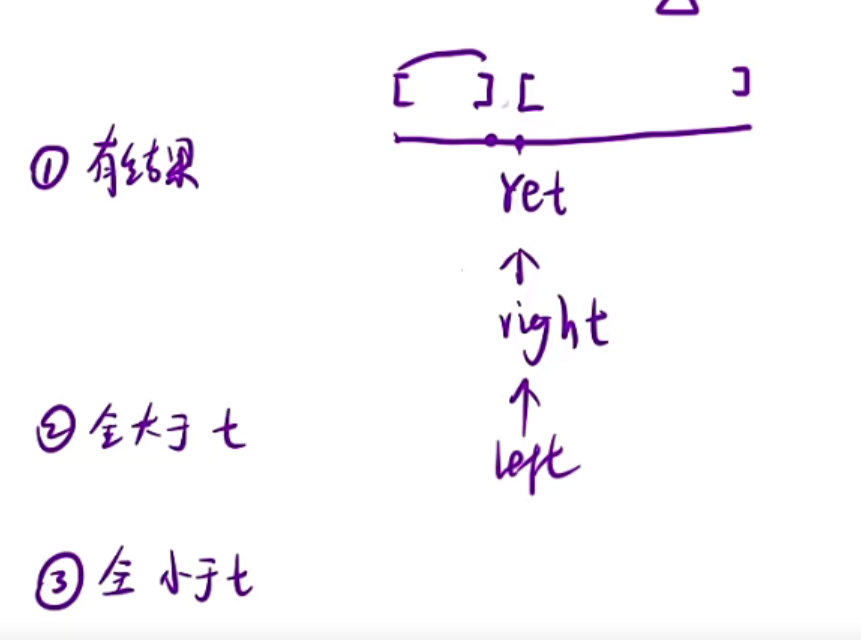 [ ] [ ]
① 有结果
ret
↑
right
↑
② 全大于 t
left
③ 全小于t